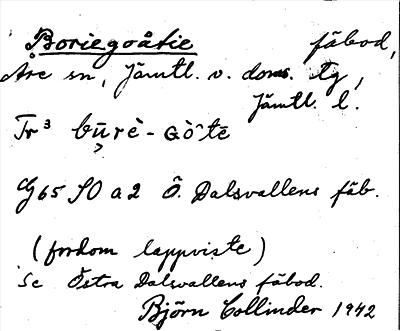 Boriegoåtie fäbod,
Åre sn, Jämtl. v. doms. tg,
Jämtl. l.
Tr³ būrè-Gò̂tē
G65 SO a2 Ö. Dalsvallens fäb.
(fordom lappviste)
Se Östra Dalsvallens fäbod.
Björn Collinder 1942